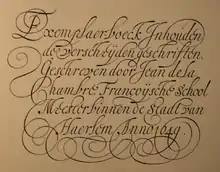 Exemplaer-boeck Inhouden
de verscheyden geschriften.
Geschreven door Jean de la
Chambre Françoÿsche School
Meester binnen de Stadt van
Haerlem. Anno 1649.